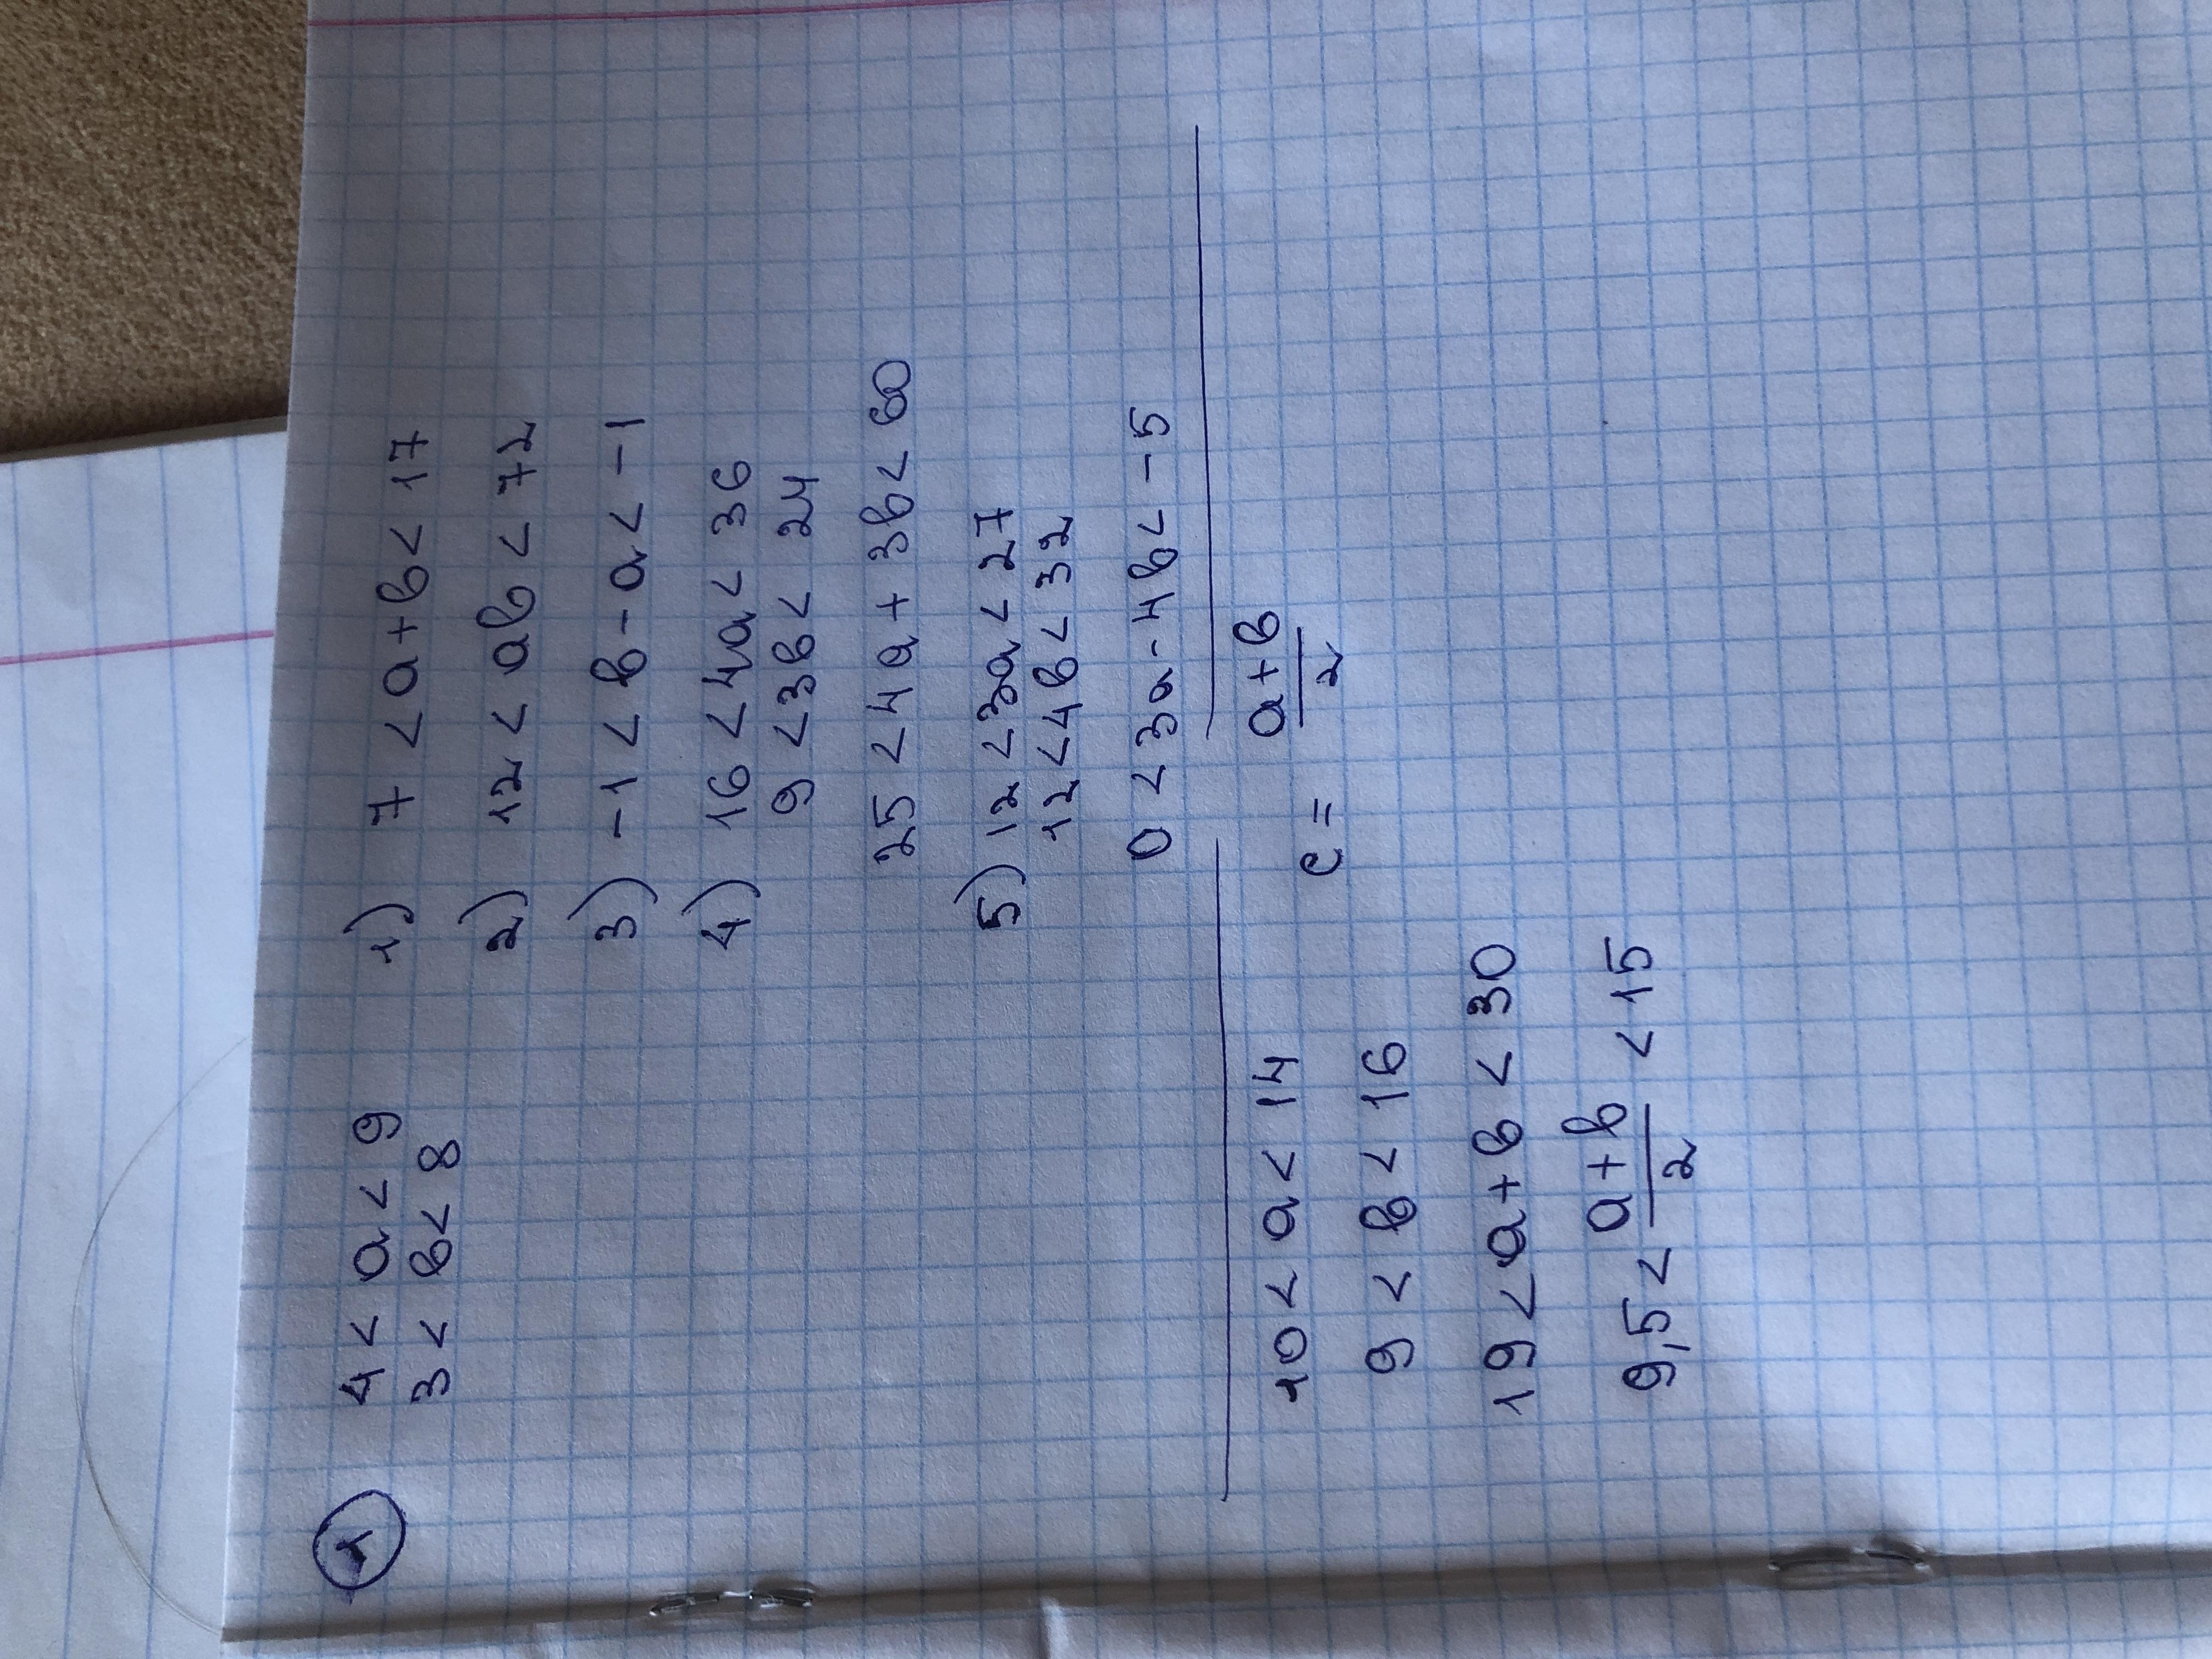 1
4 < a < 9
3 < b < 8
1) 7 < a + b < 17
2) 12 < ab < 72
3) -1 < b - a < -1
4) 16 < 4a < 36
9 < 3b < 24
25 < 4a + 3b < 60
5) 12 < 3a < 27
12 < 4b < 32
0 < 3a - 4b < -5
10 < a < 14
9 < b < 16
19 < a + b < 30
9,5 < (a+b)/2 < 15
c = (a+b)/2